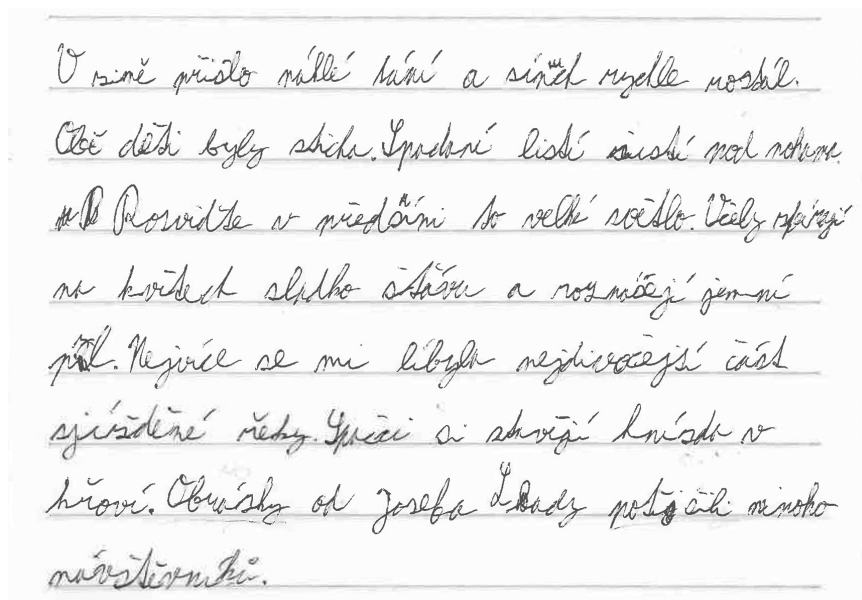 V zimě přišlo náhlé tání a sníh rychle rostál.
Obě děti byly sticha. Spadaní listí šustí pod nohama.
Rosviďte v předsíni to velké světlo. Včely
na květech sladko šťávu a roznášejí jemní
pyl. Nejvíce se mi líbyla nejdivočejší část
sjížděné řeky. Spaěci si stavějí hnízda v
křoví. Obrázky od Josefa Lady potěšili mnoho
návštěvníků.